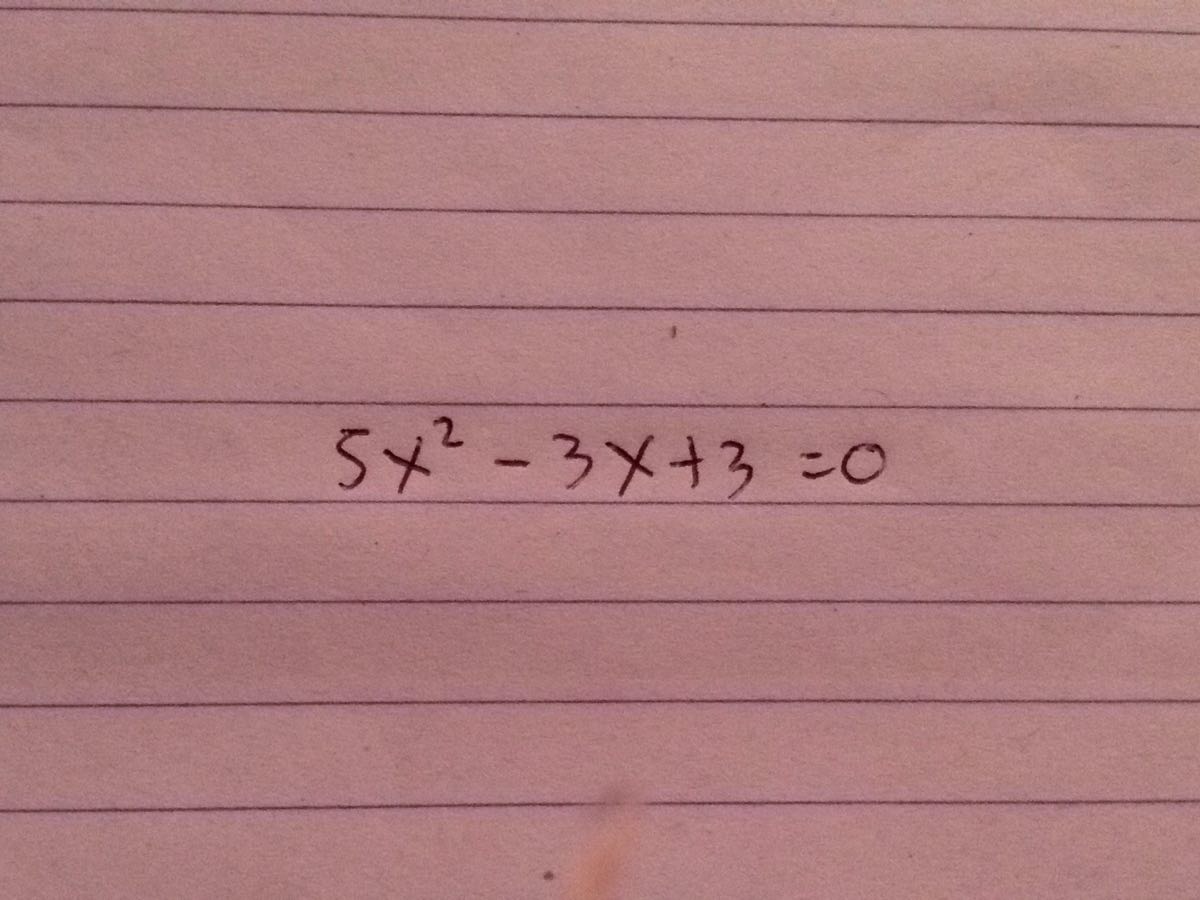 5x² - 3x + 3 = 0